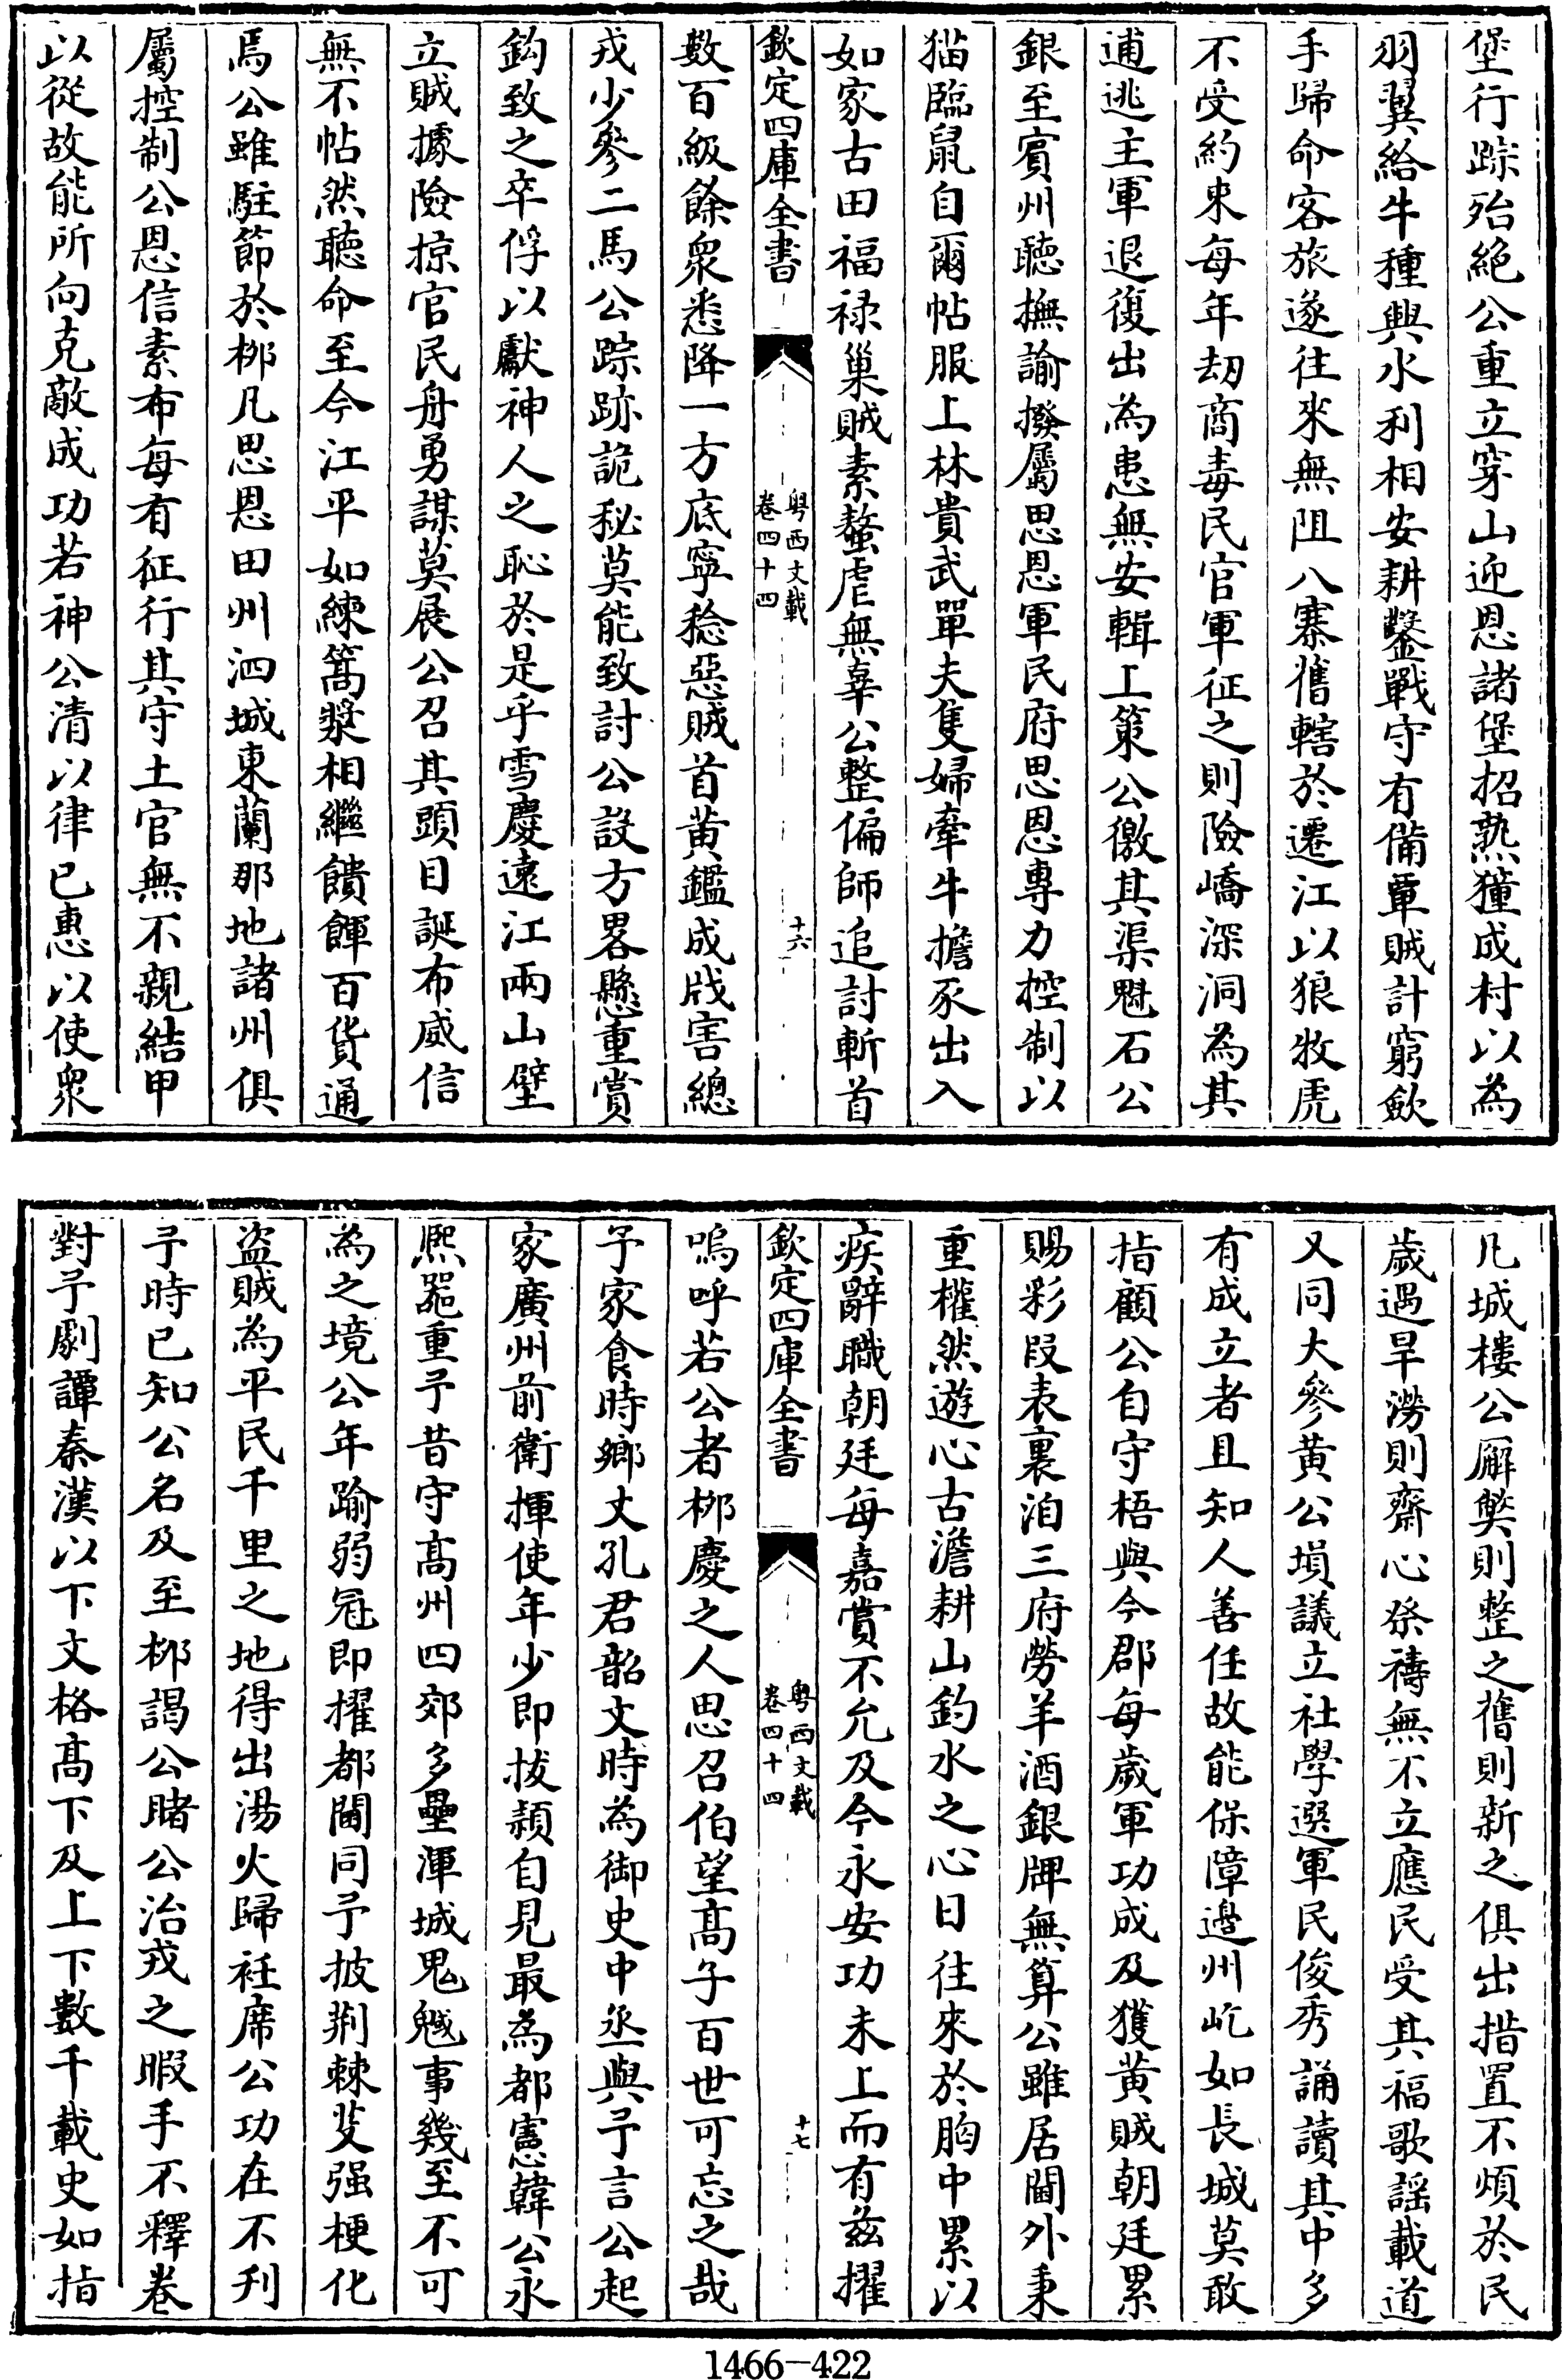 堡行踪殆絕公重立穿山迎恩諸堡招熟獞成村以為
羽翼給牛種興水利相安耕鑿戰守有備軍賊計窮歛
手歸命客旅遂往來無阻八寨舊轄於遷江以狼牧虎
不受約束每年刧商毒民官軍征之則險嶠深洞為其
逋逃主軍退復出為患無安輯上策公徼其渠魁石公
銀至賓州聽撫諭撥屬思恩軍民府思恩專力控制以
猫臨鼠自爾帖服上林貴武單夫隻婦牽牛擔豕出入
如家古田福禄巢賊素螫虐無辜公整偏師追討斬首
欽定四庫全書
粤西文載
卷四十四
十六
數百級餘衆悉降一方底寧稔惡賊首黄鑑成戕害總
戎少參二馬公踪跡詭秘莫能致討公設方畧懸重賞
鈎致之卒俘以獻神人之恥於是乎雪慶遠江兩山壁
立賊據險掠官民舟勇謀莫展公召其頭目誕布威信
無不帖然聽命至今江平如練篙槳相繼饋餫百貨通
焉公雖駐節於桞凡思恩田州泗城東蘭那地諸州俱
屬控制公恩信素布每有征行其守土官無不親結甲
以從故能所向克敵成功若神公清以律已惠以使衆
凡城樓公廨獘則整之舊則新之俱出措置不煩於民
歲遇旱澇則齋心祭禱無不立應民受其福歌謡載道
又同大參黄公塤議立社學選軍民俊秀誦讀其中多
有成立者且知人善任故能保障邊州屹如長城莫敢
指顧公自守梧與今郡每歲軍功成及獲黄賊朝廷累
賜彩叚表裏洎三府勞羊酒銀牌無算公雖居閫外秉
重權然遊心古澹耕山釣水之心日往來於胸中累以
疾辭職朝廷每嘉賞不允及今永安功未上而有兹擢
欽定四庫全書
粤西文載
卷四十四
十七
嗚呼若公者桞慶之人思召伯望髙子百世可忘之哉
予家食時鄉丈孔君韶文時為御史中丞與予言公起
家廣州前衛揮使年少即拔頴自見最為都憲韓公永
熈器重予昔守髙州四郊多壘渾城鬼魆事幾至不可
為之境公年踰弱冠即擢都閫同予披荆棘芟强梗化
盜賊為平民千里之地得出湯火歸袵席公功在不刋
予時已知公名及至桞謁公睹公治戎之暇手不釋卷
對予劇譚秦漢以下文格髙下及上下數千載史如指
1466—422